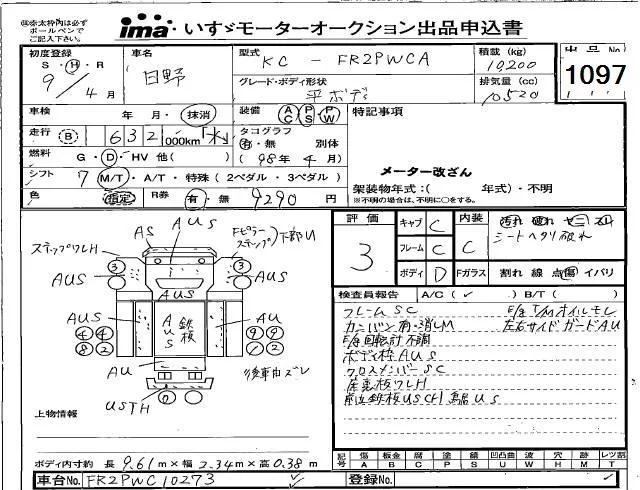 ㊟太枠内は必ずボールペンでご記入下さい。
ima いすゞモーターオークション出品申込書
初度登録 S・H・R 9/4月
車名 日野
型式 KC - FR2PWCA
積載(kg) 10,200
出品No 1097
グレード・ボディ形状 平ボデ
排気量(cc) 10520
車検 年 月・抹消
装備 AC PS PW
特記事項
走行 B 632,000km
タコグラフ 有・無 別体 (98年4月)
燃料 G・D・HV 他( )
メーター改ざん
シフト 7 M/T・A/T・特殊(2ペダル・3ペダル)
架装物年式:( 年式)・不明
※不明の場合は、不明に○をする。
色 指定 R券 有・無 9290円
評価 3
キャブ C
内装 C
汚れ 破れ
シートヘタリ破れ
フレーム C
ボディ D
Fガラス 割れ 線 点 傷 イバリ
ステップワレH
AS
AUS
Fピラー ステップ 下部U
3 3
AUS AUS
AUS
AUS AUS
AUS 鉄板
4 4
8 2
AU
後車由ズレ
USTH
上物情報
検査員報告 A/C(✓) B/T( )
フレームSC
E/g T/Mオイルモレ
カンバン有・消しM
左右サイドガードAU
E/g回転計不調
ボディ枠AUS
クロスメンバーSC
座裏板ワレH
記号 傷A 板金B 腐C 塗P 錆S 凹凸曲U 波W 穴H 跡M レツ割T
ボディ内寸約 長9.61m×幅2.34m×高0.38m
車台No. FR2PWC10273
登録No.